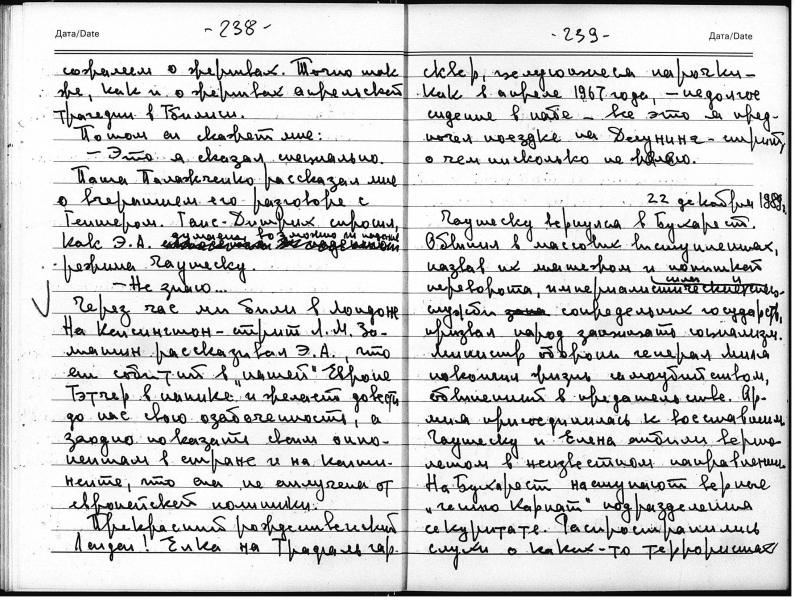 Дата/Date
-238-
сожалеем о жертвах. Точно так
же, как и о жертвах апрельской
трагедии в Тбилиси.
Потом он скажет мне:
— Это я сказал специально.
Паша Палажченко рассказал мне
о вчерашнем его разговоре с
Геншером. Ганс-Дитрих спросил,
как Э.А. думает, возможно ли падение
режима Чаушеску.
— Не знаю...
Через час мы были в Лондоне
На Кенсингтон-стрит Л.М. За-
мятин рассказывал Э.А., что
от событий в "нашей" Европе
Тэтчер в панике и желает довести
до нас свою озабоченность, а
заодно показать своим оппо-
нентам в стране и на конти-
ненте, что она не отлучена от
европейской политики.
Прекрасный рождественский
Лондон! Елка на Трафальгар-
-239-
Дата/Date
сквер, целующиеся парочки —
как в апреле 1967 года, — недолгое
сидение в пабе — все это я пред-
почел поездке на Даунинг-стрит,
о чем нисколько не жалею.
22 декабря 1989г.
Чаушеску вернулся в Бухарест.
Обвинил в массовых выступлениях,
назвав их мятежом и попыткой
переворота, империалистические
службы сопредельных государств,
призвал народ защищать социализм.
Министр обороны генерал Миля
покончил жизнь самоубийством,
обвиненный в предательстве. Ар-
мия присоединилась к восставшим
Чаушеску и Елена отбыли верто-
летом в неизвестном направлении.
На Бухарест наступают верные
"гению Карпат" подразделения
секуритате. Распространились
слухи о каких-то террористах